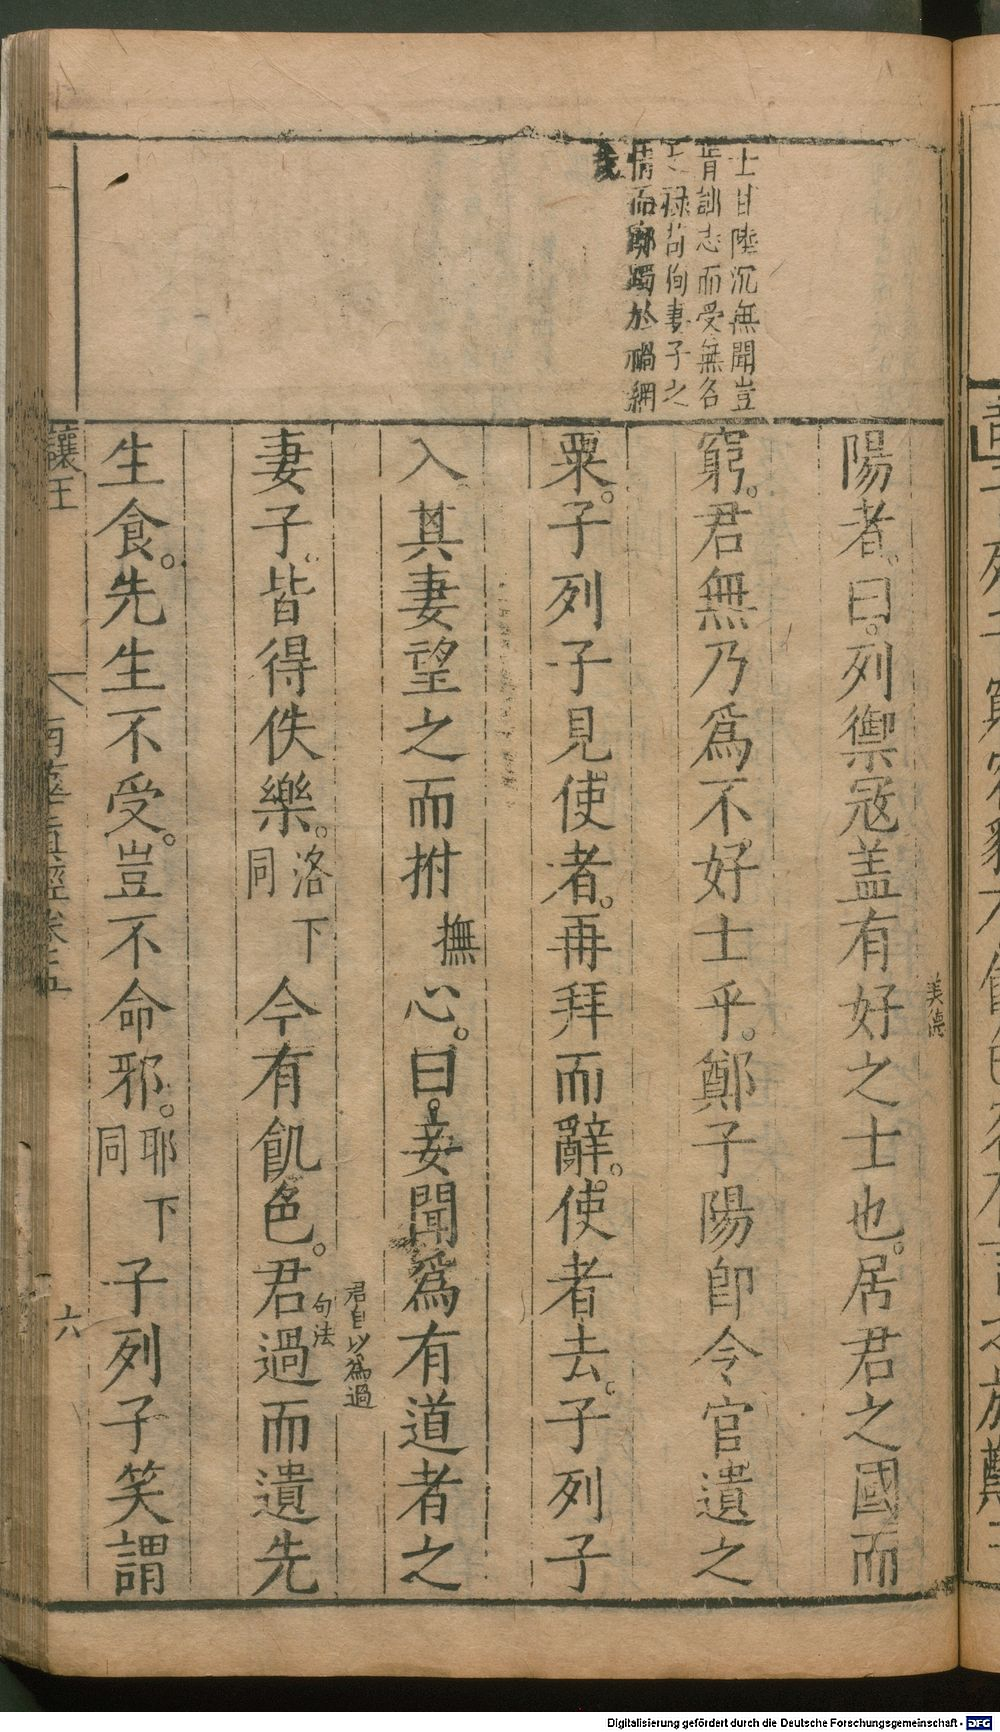 士甘陸沉無聞豈
肯詘志而受無名
之祿苟徇妻子之
情而躑躅於禍網
哉
陽者。曰。列禦寇盖有好之士也。居君之國而
美德
窮。君無乃爲不好士乎。鄭子陽即令官遺之
粟。子列子見使者。再拜而辭。使者去。子列子
入其妻望之而拊撫心。曰。妾聞爲有道者之
君自以爲過
妻子。皆得佚樂。洛下同今有飢色。君過而遺先
句法
生食。先生不受。豈不命邪。耶下同子列子笑謂
讓王
南華真經卷五
六
Digitalisierung gefördert durch die Deutsche Forschungsgemeinschaft - DFG